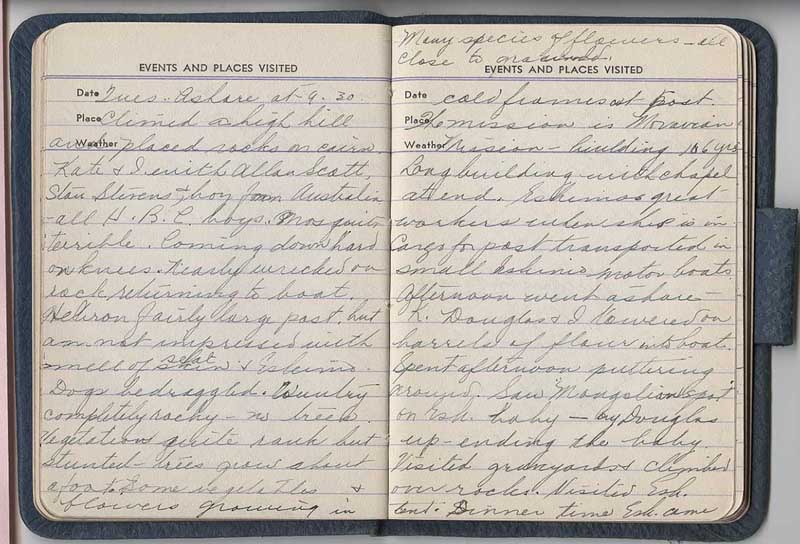 EVENTS AND PLACES VISITED
Date Tues. Ashore at 9.30.
Place Climed a high hill
Weather and placed rocks on cairn.
Kate & I with Allan Scott,
Stan Stevens & boy from Australia
- all H.B.C. boys. Mosquitos
terrible. Coming down hard
on knees. Nearly wrecked on
rock returning to boat.
Hebron fairly large post, but
am not impressed with
smell of seal skin & Eskimo.
Dogs bedraggled. Country
completely rocky - no trees.
Vegetation quite rank but
stunted - trees grow about
a foot. Some vegetables &
flowers growing in
Many species of flowers - all
close to ground.
EVENTS AND PLACES VISITED
Date cold frames at post.
Place The mission is Moravian
Weather Mission - building 106 yrs
Long building with chapel
at end. Eskimos great
workers when ship is in
Cargo for post transported in
small Eskimo motor boats.
Afternoon went ashore -
K. Douglas & I lowered on
barrels of flour into boat.
Spent afternoon puttering
around. Saw "Mongolian spot"
on Esk. baby - by Douglas
up-ending the baby.
Visited graveyards & climbed
over rocks. Visited Esk.
tent. Dinner time Esk. came